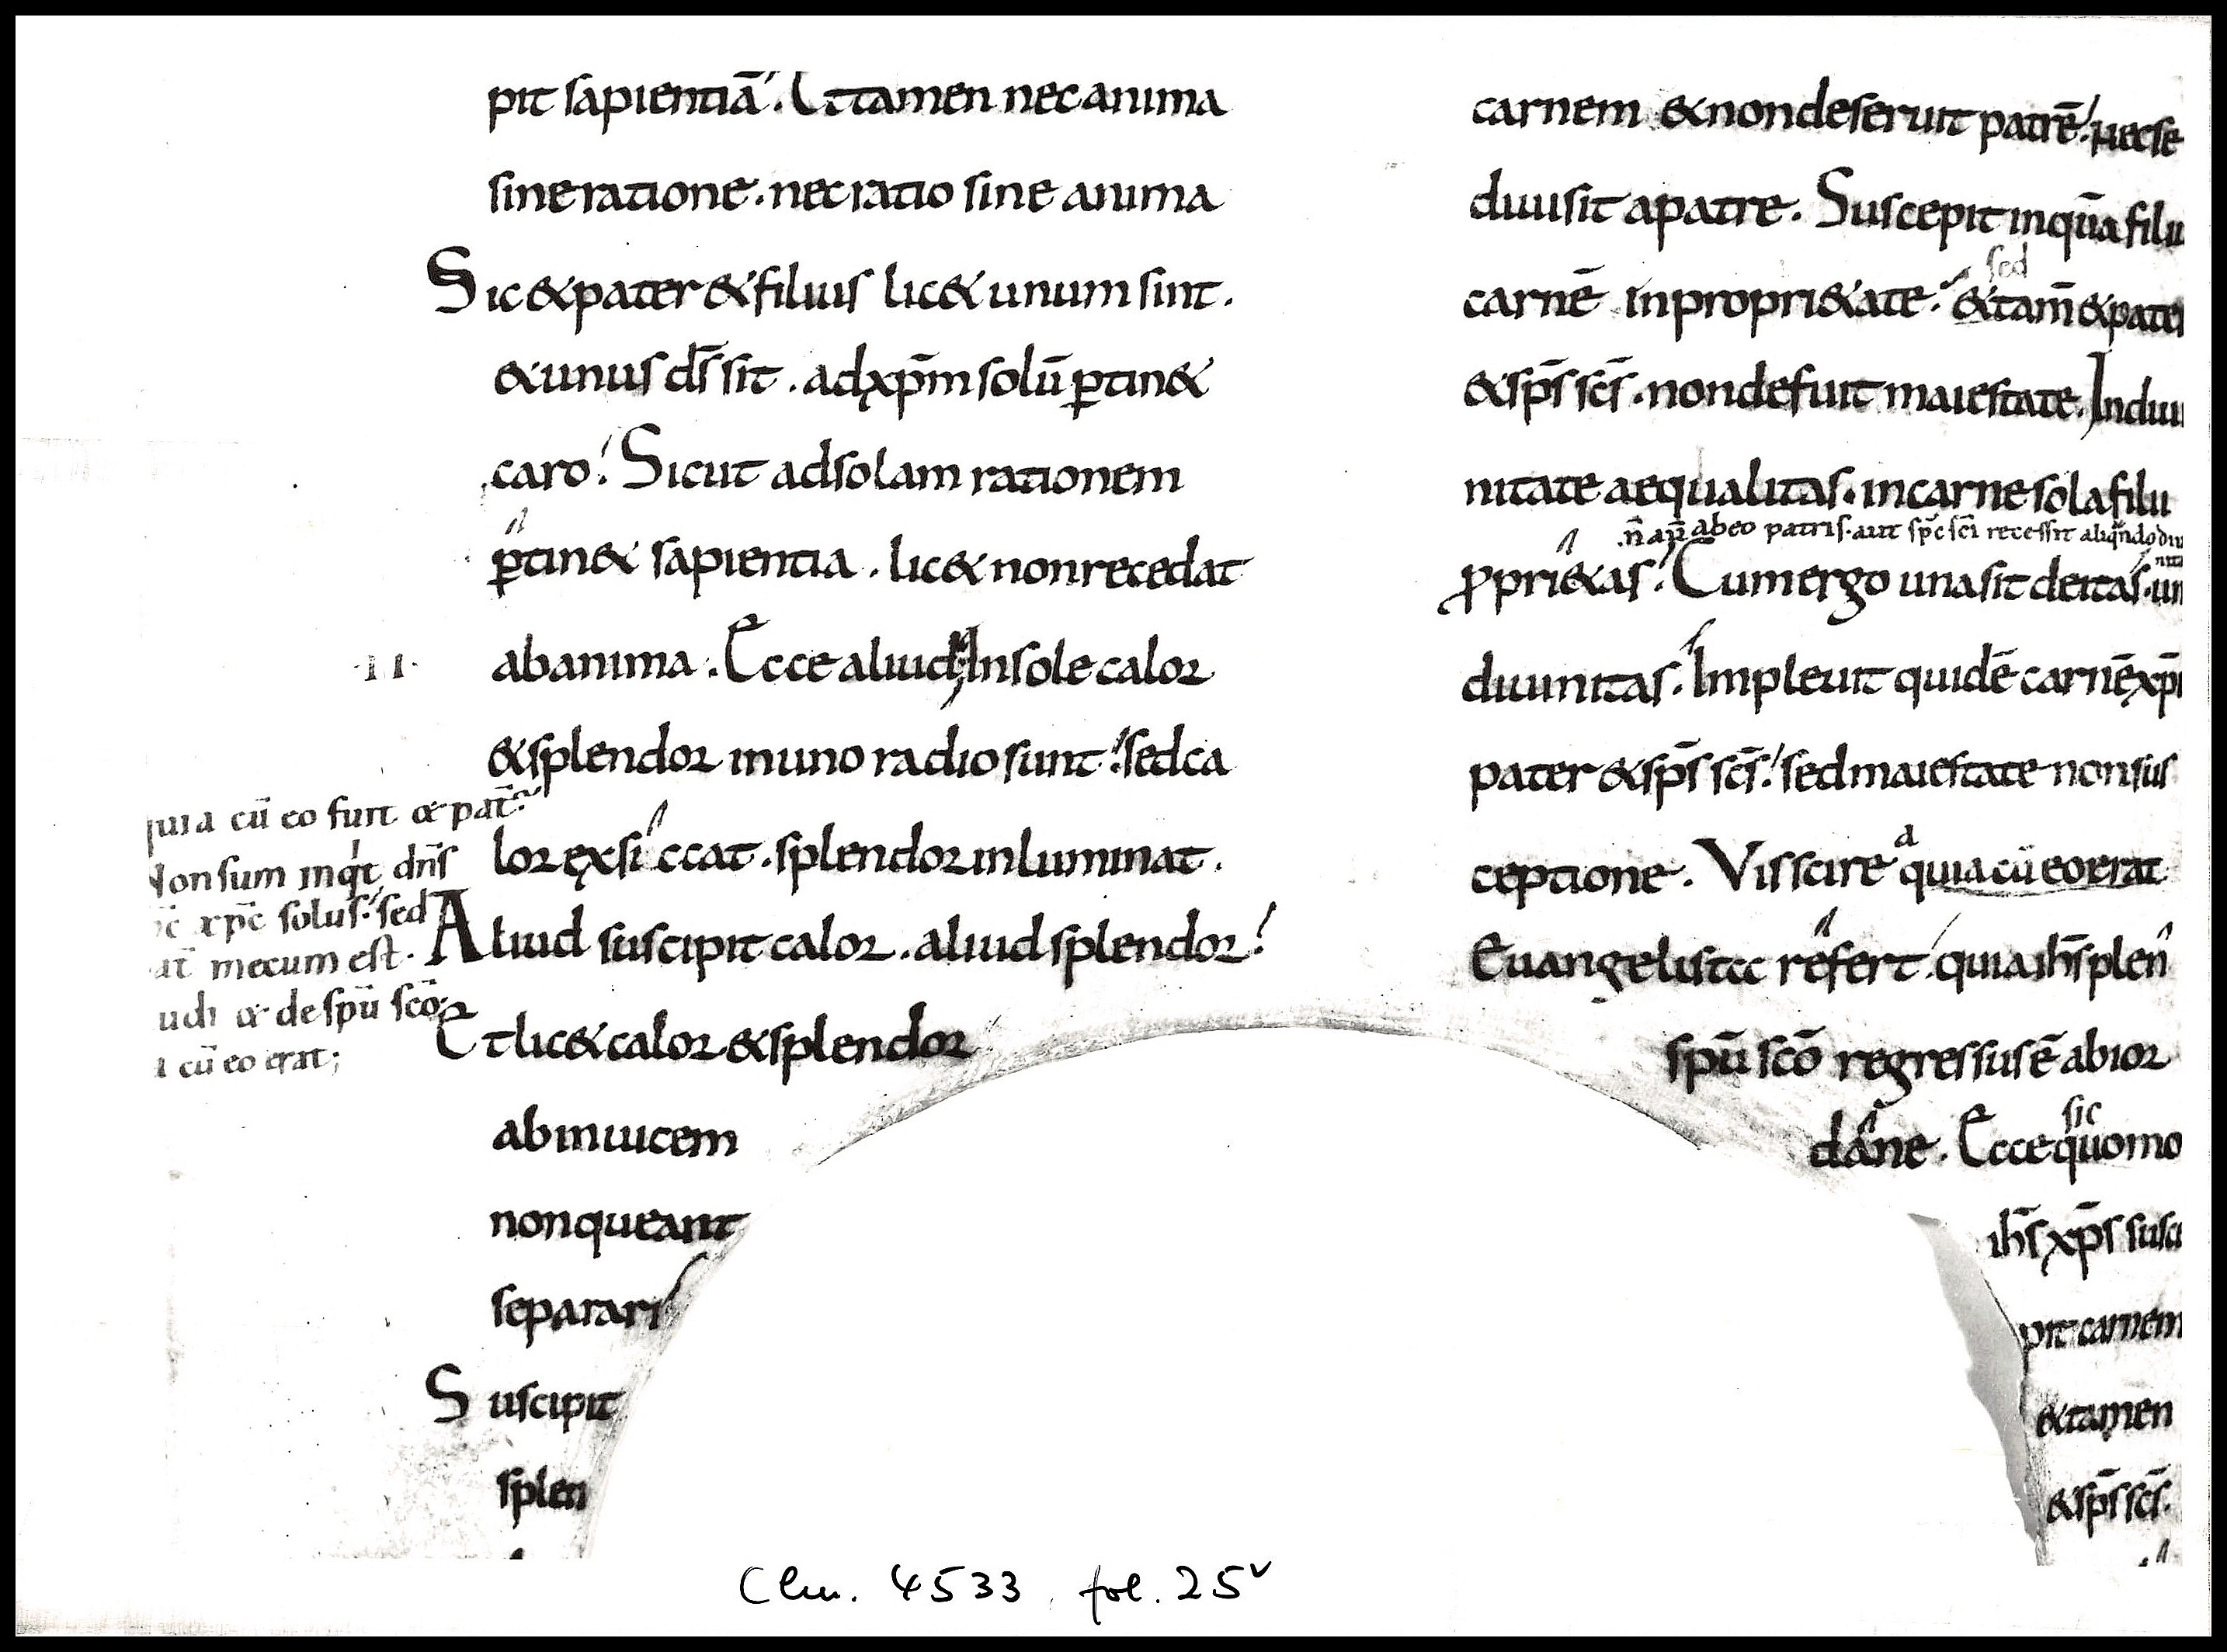 pit sapientiā. Et tamen nec anima
sine ratione. nec ratio sine anima
Sic & pater & filius lic& unum sint.
& unus d̄s sit. ad xp̄m solū ꝑtin&
caro. Sicut ad solam rationem
ꝑtin& sapientia. lic& non recedat
.II. ab anima. Ecce aliud In sole calor
& splendor in uno radio sunt. sed ca
lor ęxsiccat. splendor inluminat.
Aliud suscipit calor. aliud splendor.
Et lic& calor & splendor
ab inuicem
non queant
separari
Suscipit
splen
cū eo fuit & pat̄
sum inq̇t dn̄s
xp̄c solus. sed
mecum est.
& de spū scō.
cū eo erat;
carnem & non deseruit patrē. nec se
diuisit a patre. Suscepit inquā filiu
sed
carnē in propri&ate. & tam̄ & pater
& sp̄s sc̄s. non defuit maiestate. In diui
nitate aequalitas. in carne sola filii
n̄ aū ab eo patris. aut sp̄c sc̄i recessit aliqn̄do diui
nita
ꝓpri&as. Cum ergo una sit deitas. un
diuinitas. Impleuit quidē carnē xp̄i
pater & sp̄s sc̄s. sed maiestate non sus
ceptione. Vis scire quia cū eo erat
a
Euangelista refert. quia ih̄s plen
spū scō regressus ē ab ior
dane. Ecce quomo
sic
ih̄s xp̄s susci
pit carnem
& tamen
& sp̄s sc̄s.
Clm. 4533, fol. 25v